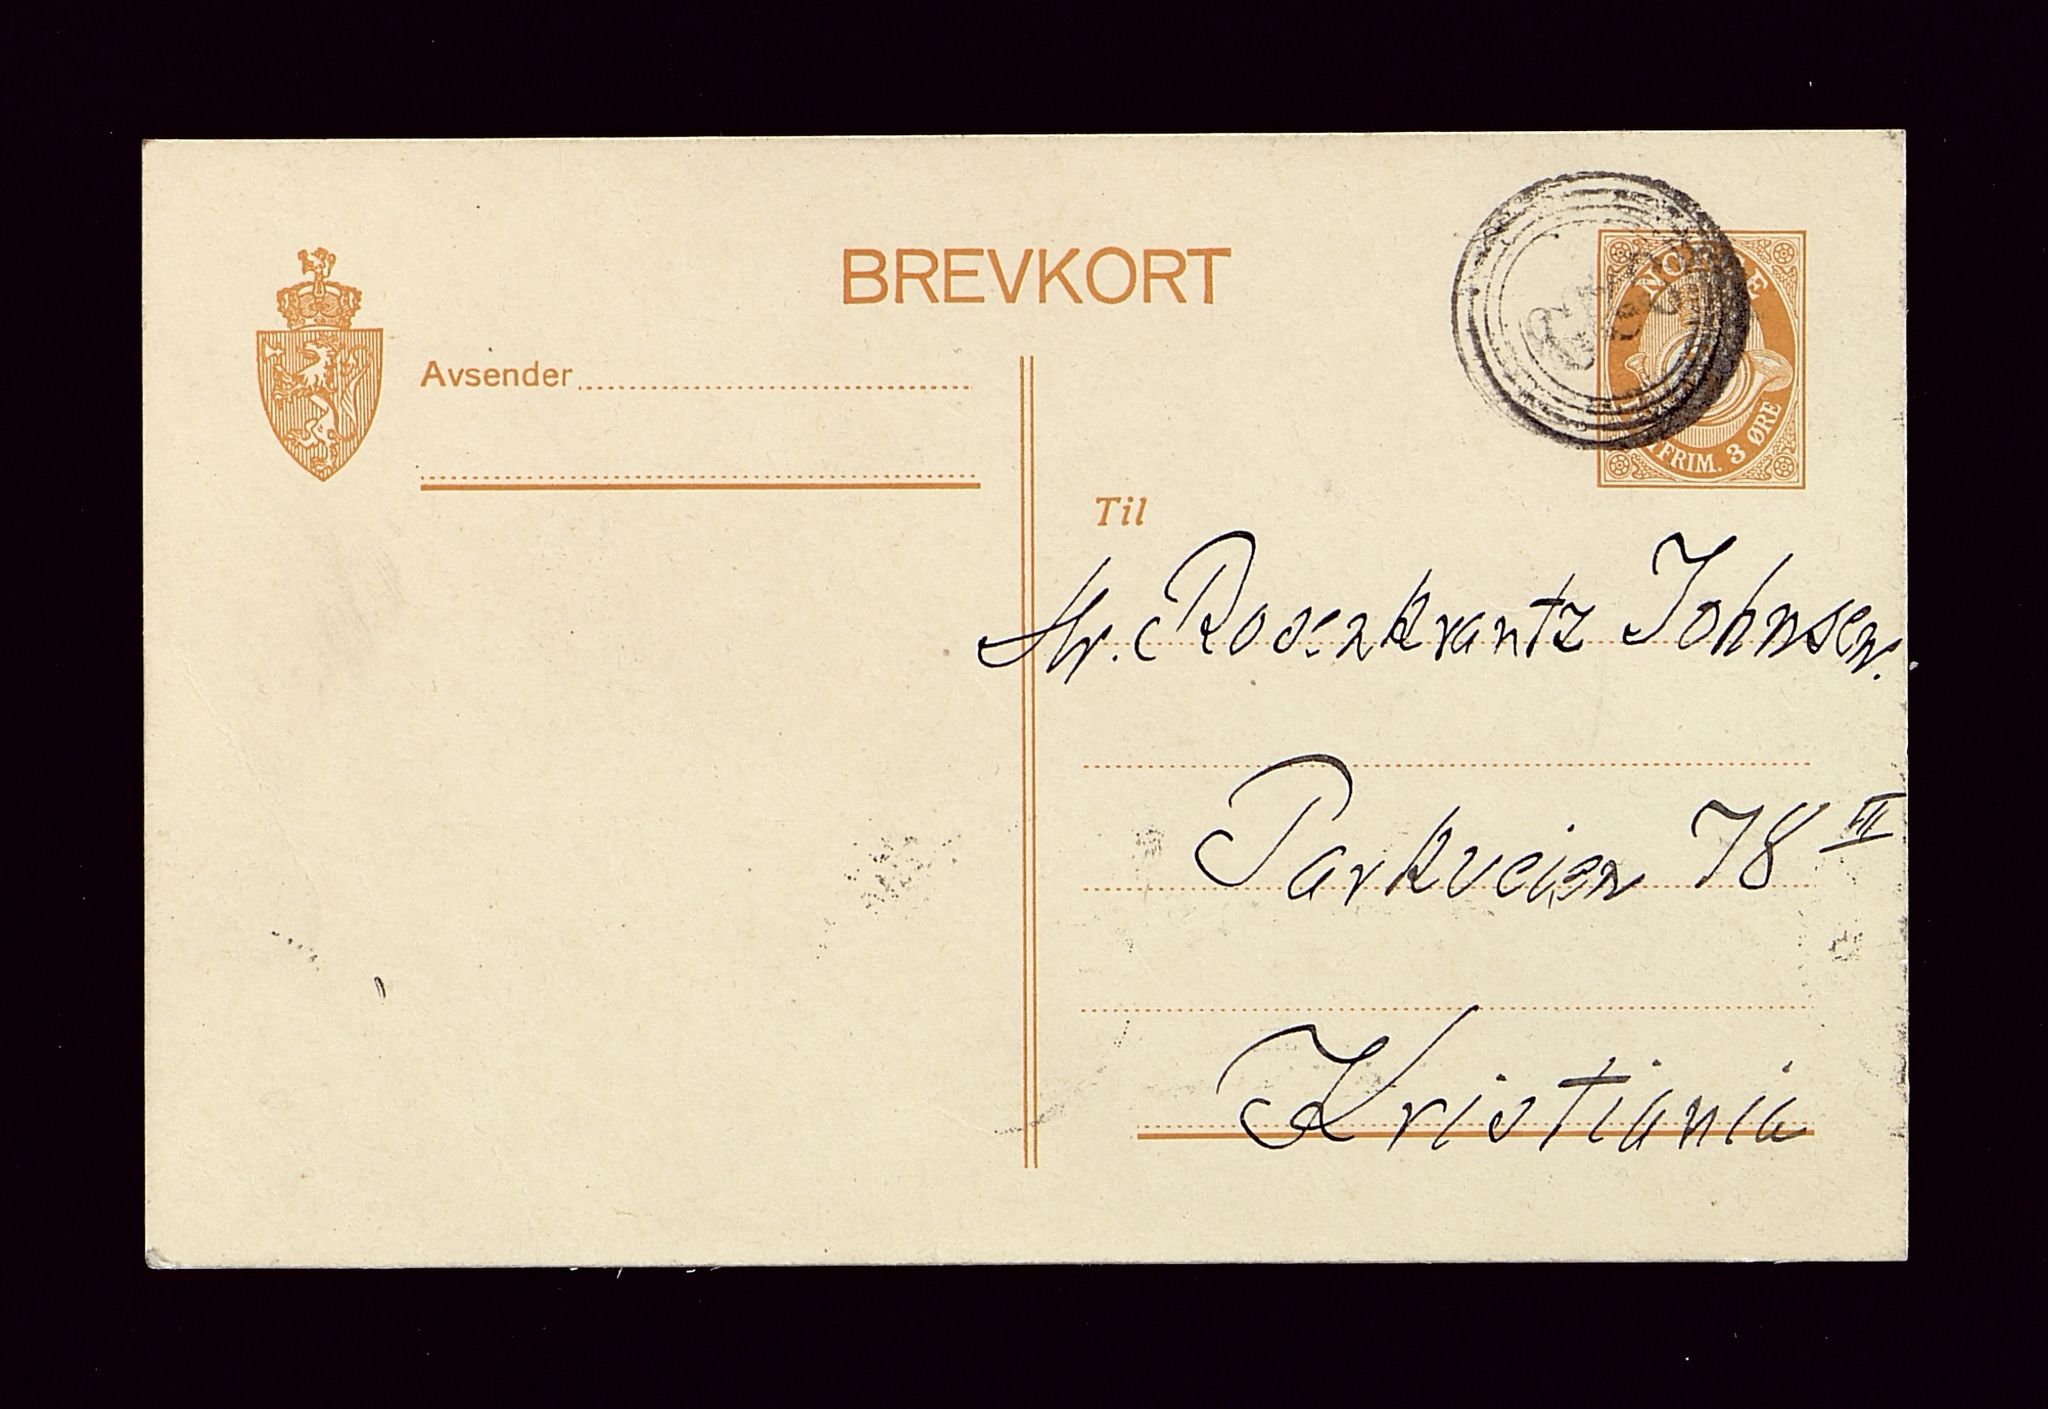 BREVKORT
NORGE
FRIM. 3 ØRE
Avsender
Til
Hr. Rosenkrantz Johnsen.
Parkveien 78 III
Kristiania